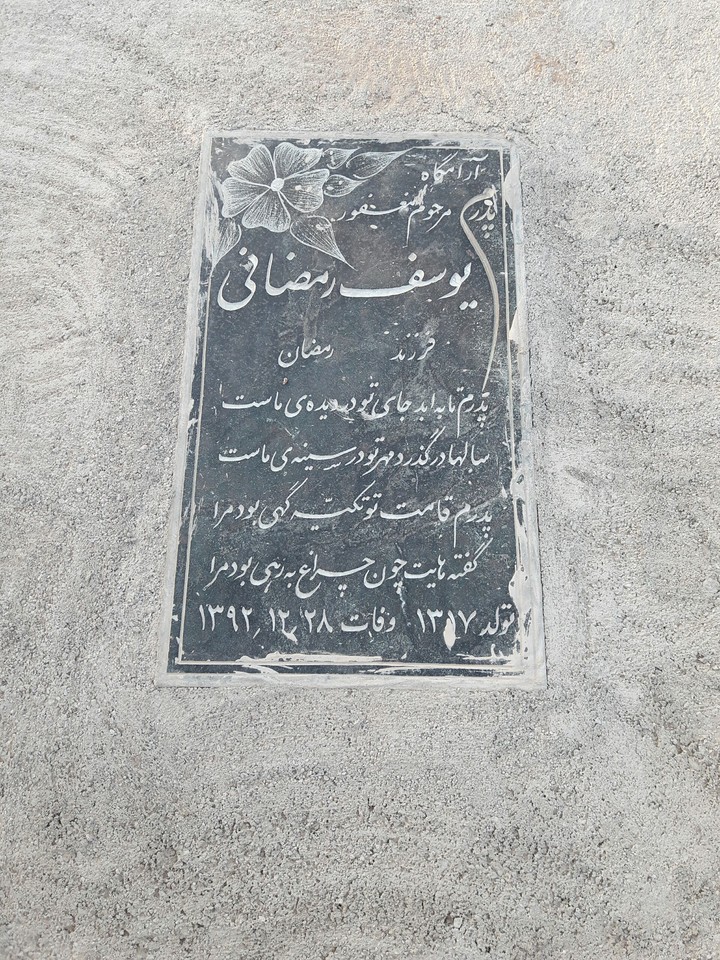 آرامگاه
پدر مرحوم مغفور
یوسف رمضانی
فرزند رمضان
پدرم تا به ابد جای تو در دیده‌ی ماست
سالها در گذرد مهر تو در سینه‌ی ماست
پدرم قامت تو تکیه گهی بود مرا
گفته هایت چون چراغ به رهی بود مرا
تولد ۱۳۱۷ وفات ۱۳۹۲،۱۲،۲۸